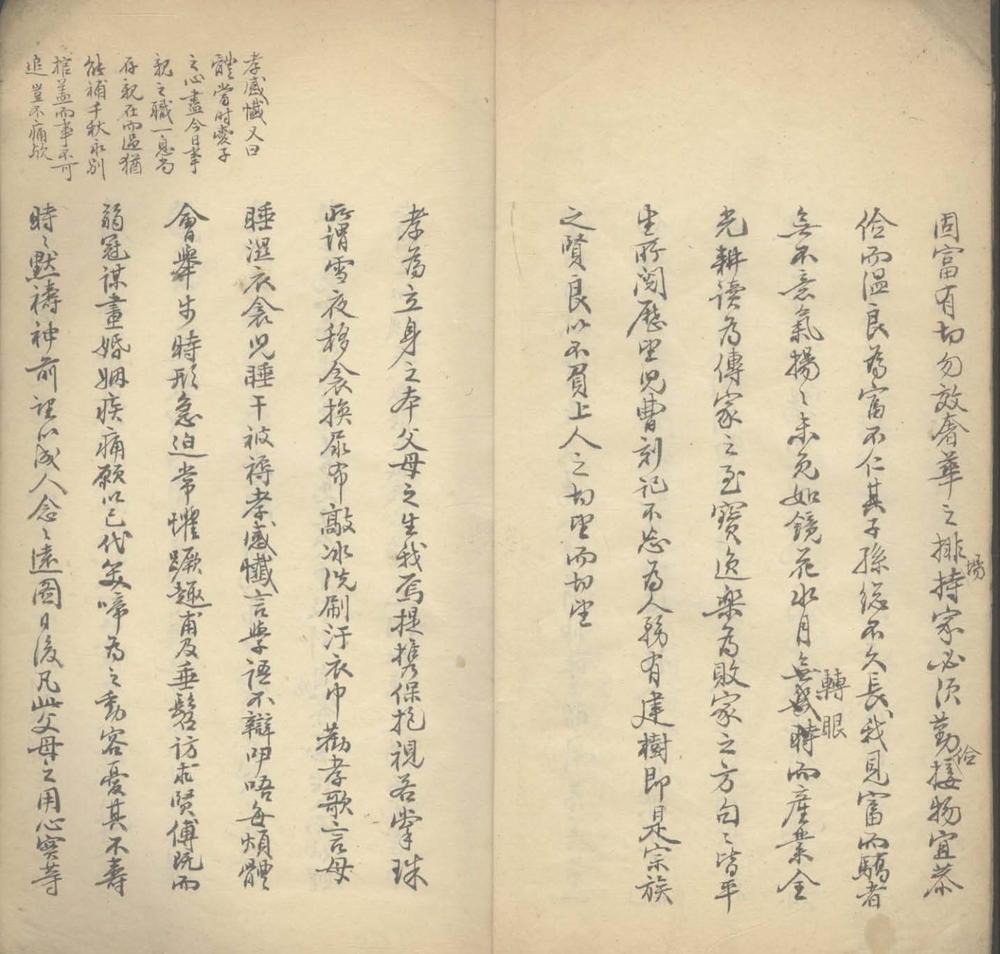 固富有切勿效奢華之排場持家必須勤儉接物宜恭
儉而溫良為富不仁其子孫總不久長我見富而驕者
無不意氣揚々未免如鏡花水月無幾時轉眼而產業全
光耕讀為傳家之至寶逸樂為敗家之方句々皆平
生所閱歷望兒曹刻記不忘為人務有建樹即是宗族
之賢良以不負上人之切望而切望
孝感懺又曰
體當時愛子
之心盡今日事
親之職一息尚
存親在而溫猶
能補千秋永別
棺蓋而事不可
追豈不痛欤
孝為立身之本父母之生我焉提攜保抱視若掌珠
所謂雪夜移衾換尿布敲冰洗刷汙衣巾勸孝歌言母
睡濕衣衾兒睡干被褥孝感懺言學語不辯吚唔每煩體
會舉步時形急迫常懼蹶趨甫及垂髫訪求賢傅既而
弱冠謀畫婚姻疾痛願以己代笑啼為之動容憂其不壽
時々默禱神前望以成人念々遠圖日後凡此父母之用心實等